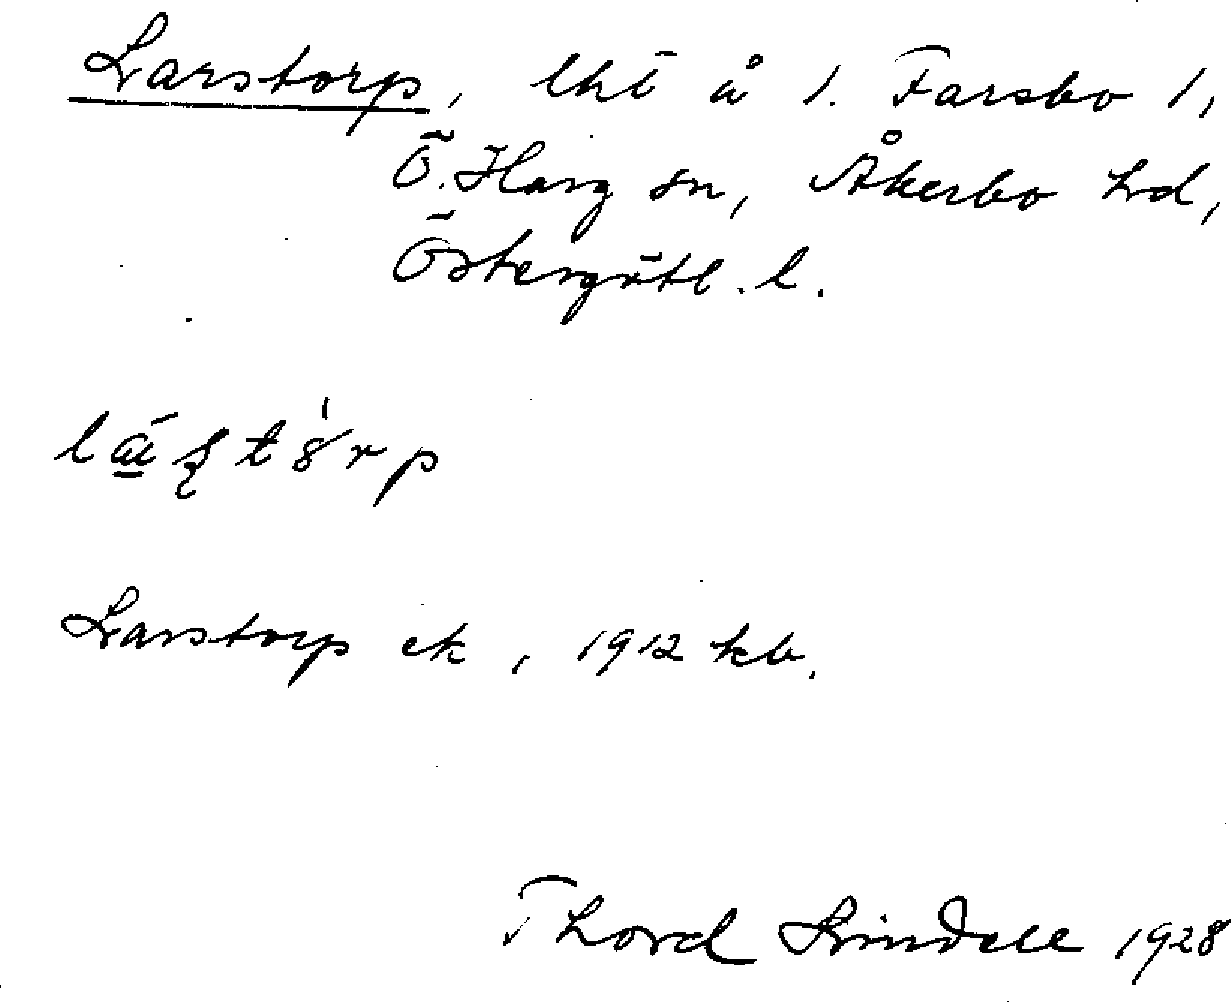 Larstorp, lht å 1. Farsbo 1,
Ö. Harg sn, Åkerbo hd,
Östergötl. l.
Larstorp ek, 1912 kb.
Thord Lindell 1928